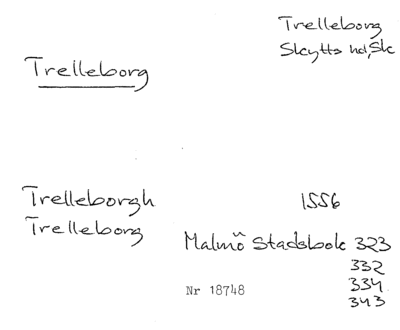 Trelleborg
Skytts hd, Sk
Trelleborg
Trelleborgh
Trelleborg
1556
Malmö Stadsbok 323
332
334
343
Nr 18748